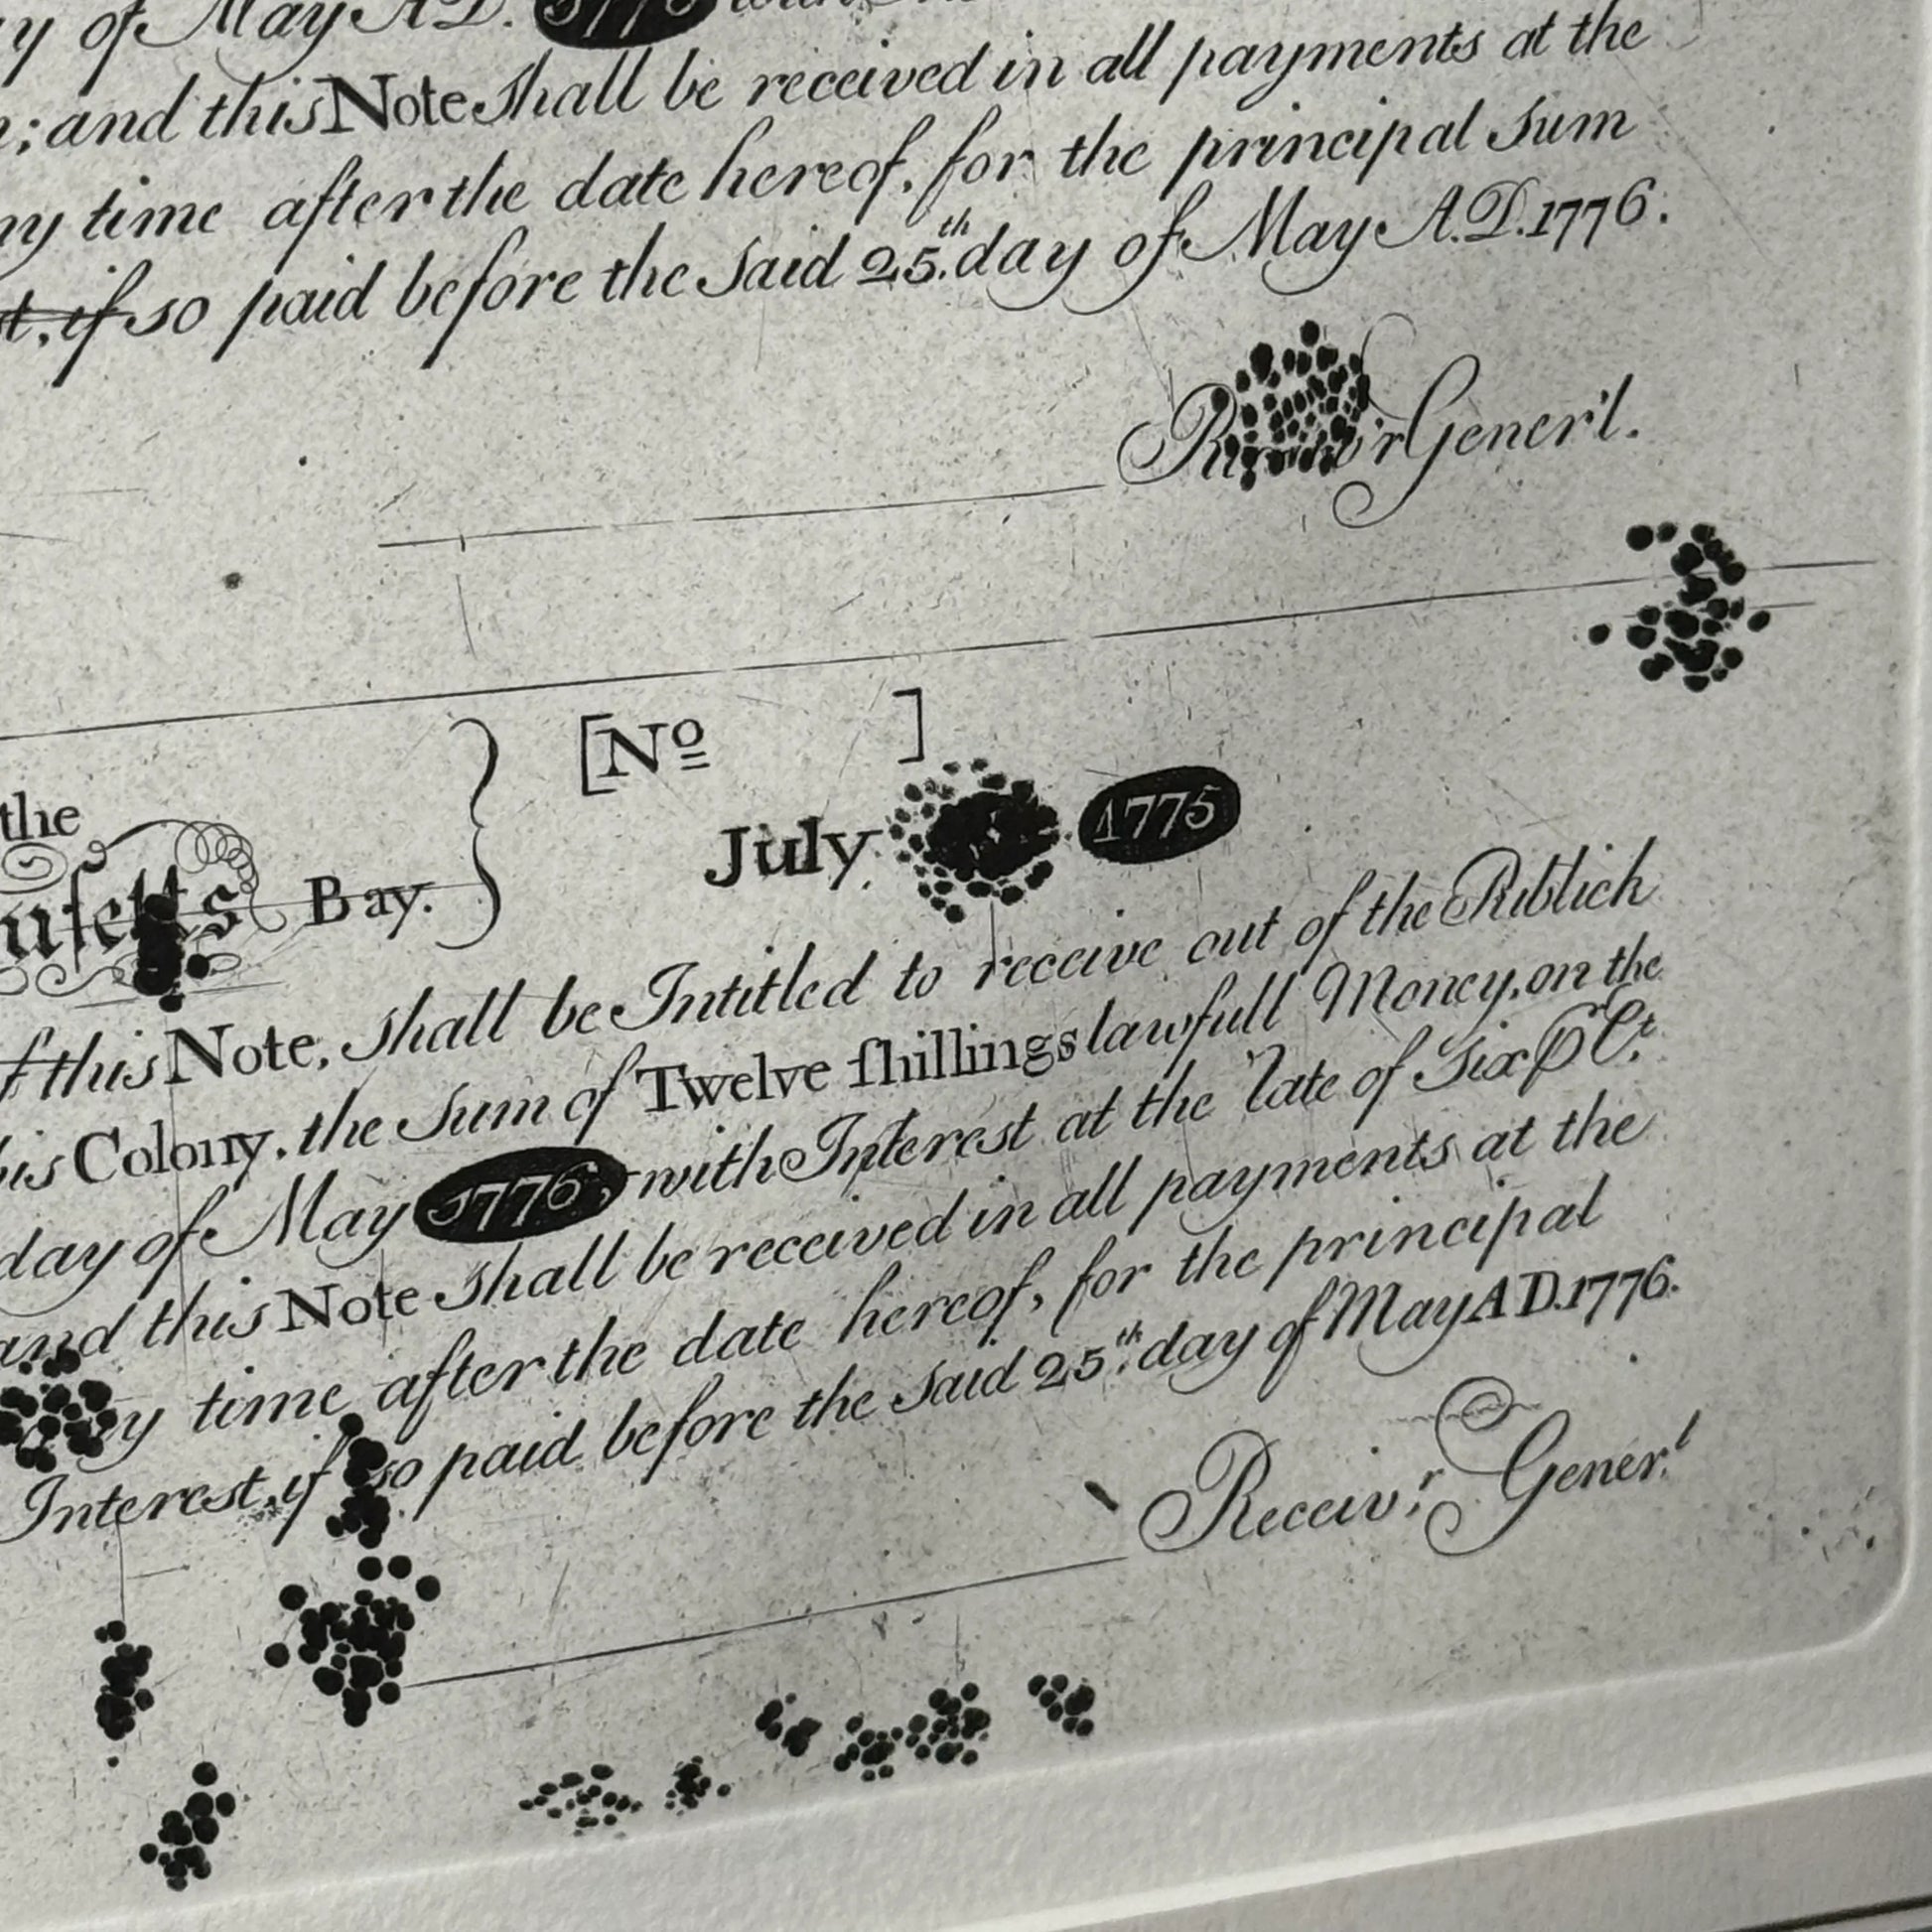 y of May A.D. 1776
; and this Note shall be received in all payments at the
ny time after the date hereof, for the principal Sum
t, if so paid before the Said 25.th day of May A.D. 1776.
Gener'l.
[No ]
July 1775
the
usetts Bay.
f this Note, shall be Intitled to receive out of the Publick
his Colony, the Sum of Twelve ſhillings lawfull Money, on the
day of May 1776, with Interest at the Rate of Six P Ct.
and this Note shall be received in all payments at the
y time after the date hereof, for the principal
Interest, if so paid before the Said 25th. day of May A D. 1776.
Receiv.r Gener.l